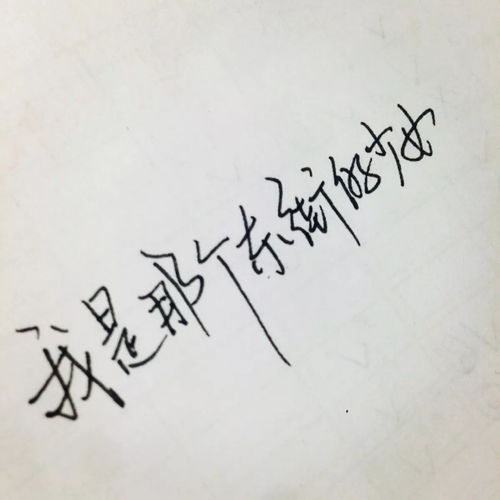 我是那个东街的少女